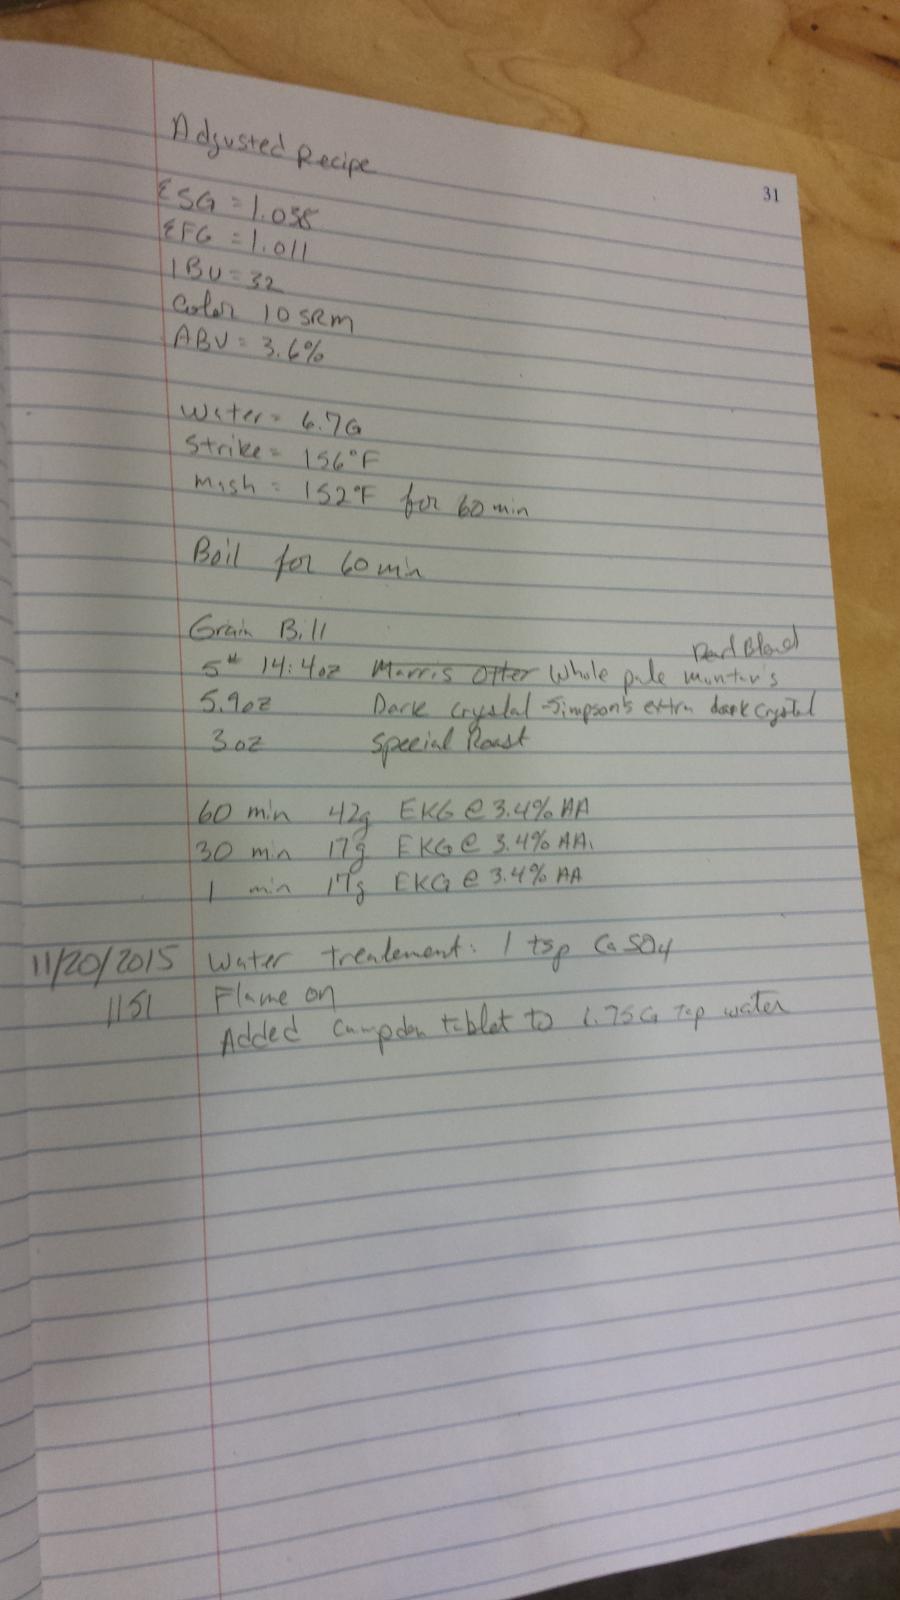 31
Adjusted Recipe
ESG = 1.038
EFG = 1.011
IBU = 32
Color 10 SRM
ABV = 3.6%
Water = 6.7G
Strike = 156°F
Mash = 152°F for 60 min
Boil for 60 min
Grain Bill
Pearl Blend
5# 14.4oz Marris Otter Whole pale Munton's
5.9oz Dark Crystal - Simpson's extra dark crystal
3oz Special Roast
60 min 42g EKG @ 3.4% AA
30 min 17g EKG @ 3.4% AA.
1 min 17g EKG @ 3.4% AA
11/20/2015 Water treatement: 1 tsp CaSO4
1151 Flame on
Added Campden tablet to 6.75G Tap water